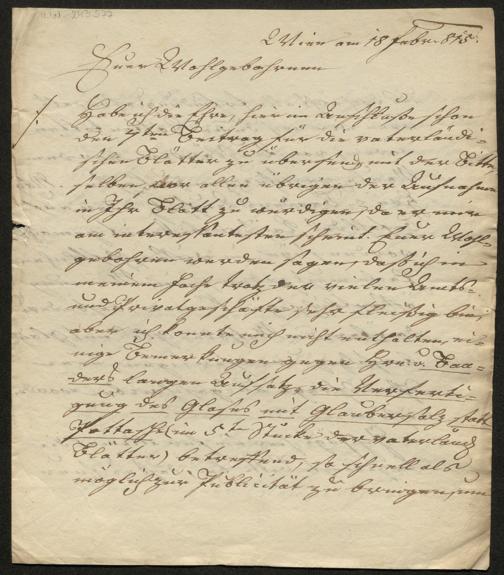 Wien am 18 Febr. 815.
Euer Wohlgebohren
Habe ich die Ehre, hier im Anschluße schon
den 7ten Beitrag für die vaterländi-
schen Blätter zu übersenden, mit der Bitte
selben vor allen übrigen der Aufnahme
in Ihr Blatt zu würdigen, da er mir
am interessantesten scheint. Euer Wohl-
gebohren werden sagen, daß ich in
meinem Fache trotz der vielen Amts-
und Privatgeschäfte sehr fleißig bin,
aber ich konnte mich nicht enthalten, ei-
nige Bemerkungen gegen Herrn Baa-
ders langen Aufsatz, die Verferti-
gung des Glases mit Glaubersalz statt
Pottasche (im 5ten Stücke der vaterländ
Blätter) betreffend, so schnell als
möglich zur Publicität zu bringen, um